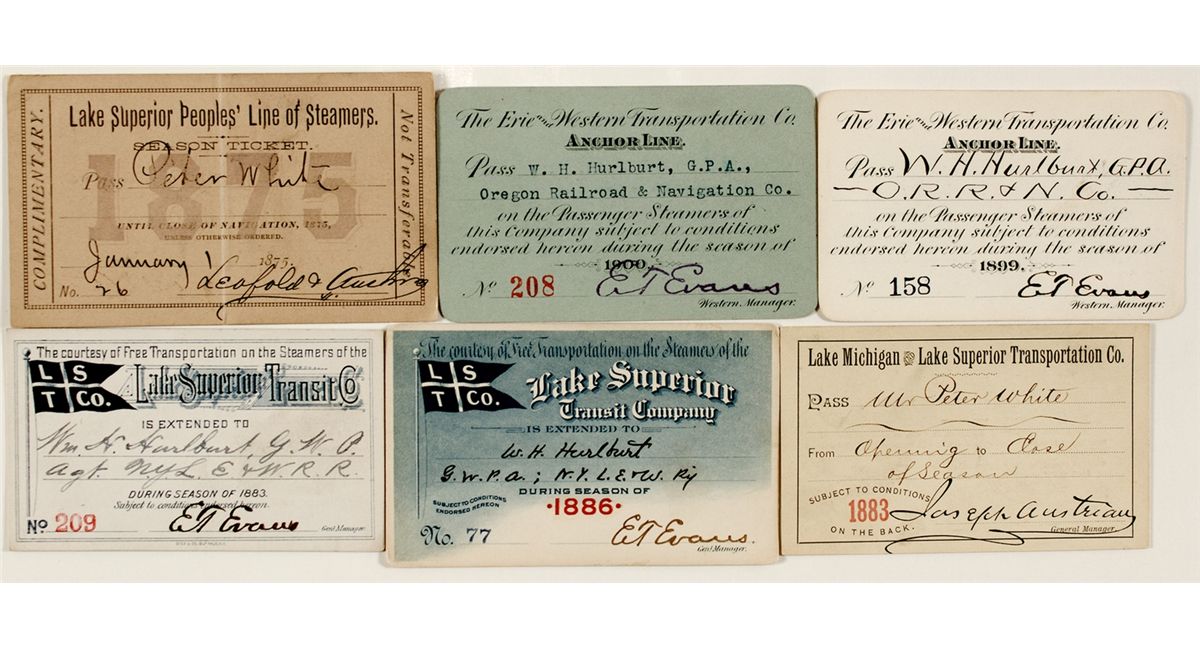 COMPLIMENTARY.
Lake Superior Peoples' Line of Steamers.
SEASON TICKET.
1875
Pass Peter White
UNTIL CLOSE OF NAVIGATION, 1875,
UNLESS OTHERWISE ORDERED.
January 1 1875.
No. 26 Leopold & Austrian
Not Transferable
The Erie and Western Transportation Co.
ANCHOR LINE.
Pass W. H. Hurlburt, G.P.A.,
Oregon Railroad & Navigation Co.
on the Passenger Steamers of
this Company subject to conditions
endorsed hereon during the season of
1900.
No 208 E T Evans
Western Manager.
The Erie and Western Transportation Co.
ANCHOR LINE.
Pass W. H. Hurlburt, G.P.A.
O.R.R. & N. Co.
on the Passenger Steamers of
this Company subject to conditions
endorsed hereon during the season of
1899.
No 158 E T Evans
Western Manager.
The courtesy of Free Transportation on the Steamers of the
L S T CO. Lake Superior Transit Co
IS EXTENDED TO
Wm H. Hurlburt G. W. P.
Agt. N.Y.L. E & W. R. R.
DURING SEASON OF 1883.
Subject to conditions endorsed hereon.
No 209 E T Evans
Genl Manager.
The courtesy of Free Transportation on the Steamers of the
L S T CO. Lake Superior
Transit Company
IS EXTENDED TO
W. H. Hurlburt
G. W. P. A.; N. Y. L. E. & W. Ry
DURING SEASON OF
SUBJECT TO CONDITIONS
ENDORSED HEREON
·1886·
No. 77 E T Evans.
Genl Manager.
Lake Michigan and Lake Superior Transportation Co.
PASS Mr Peter White
From Opening to Close
of Season
SUBJECT TO CONDITIONS
1883 Joseph Austrian
ON THE BACK. General Manager.